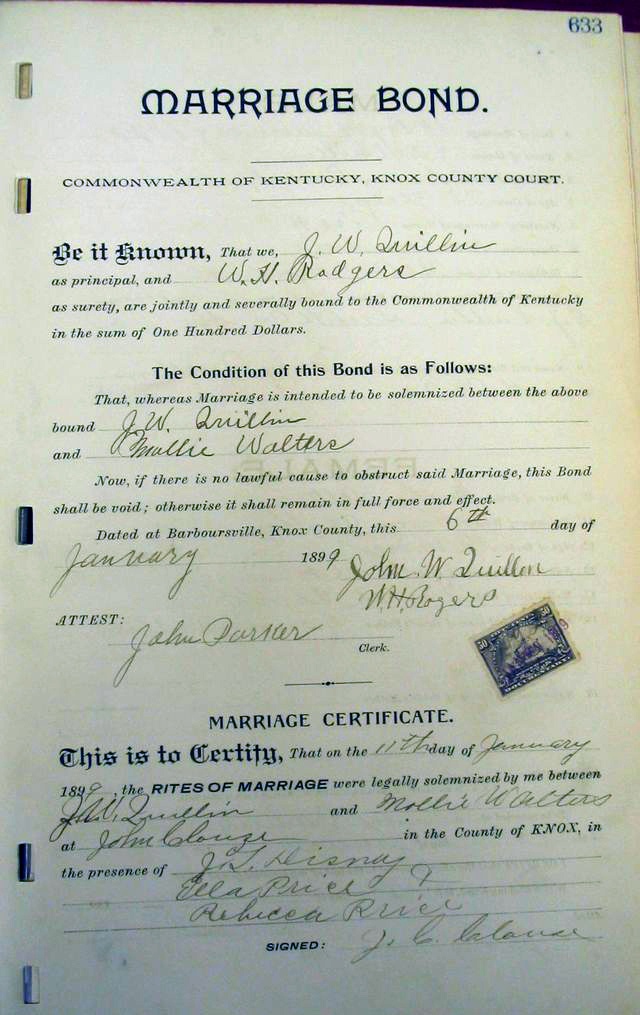 633
MARRIAGE BOND.
COMMONWEALTH OF KENTUCKY, KNOX COUNTY COURT.
Be it Known, That we, J. W. Quillin
as principal, and W. H. Rodgers
as surety, are jointly and severally bound to the Commonwealth of Kentucky
in the sum of One Hundred Dollars.
The Condition of this Bond is as Follows:
That, whereas Marriage is intended to be solemnized between the above
bound J. W. Quillin
and Mollie Walters
Now, if there is no lawful cause to obstruct said Marriage, this Bond
shall be void; otherwise it shall remain in full force and effect.
Dated at Barboursville, Knox County, this 6th day of
January 1899 John W Quillen
W. H. Rogers
ATTEST:
John Parker
Clerk.
50 50
MARRIAGE CERTIFICATE.
This is to Certify, That on the 11th day of January
1899, the RITES OF MARRIAGE were legally solemnized by me between
J. W. Quillin and Mollie Walters
at John Clouse in the County of KNOX, in
the presence of J. L. Disney
Ella Price &
Rebecca Price
SIGNED: J. C. Clouse